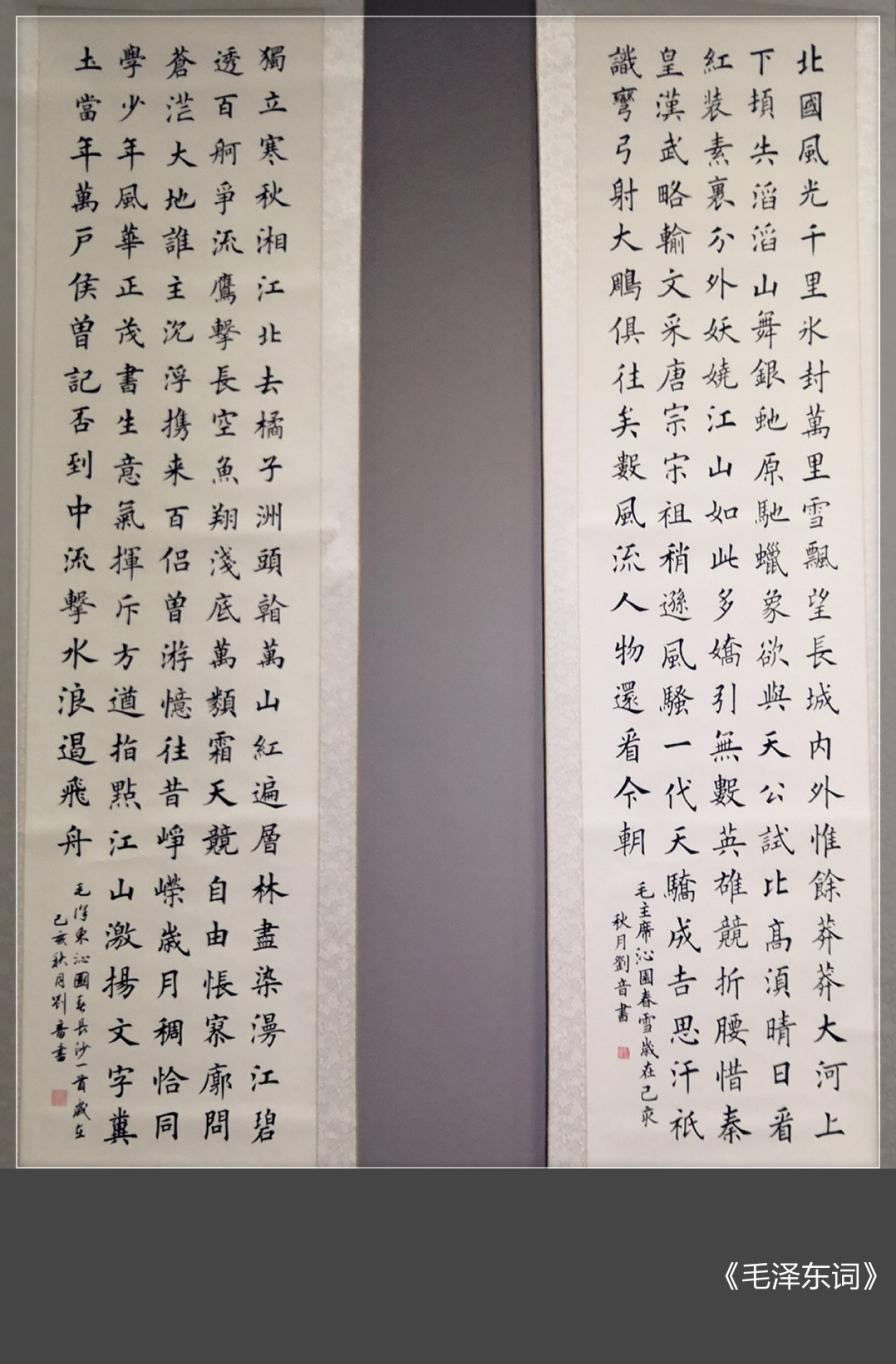 北國風光千里氷封萬里雪飄望長城内外惟餘莽莽大河上
下頓失滔滔山舞銀虵原馳蠟象欲與天公試比高湏晴日看
紅装素裹分外妖嬈江山如此多嬌引無數英雄競折腰惜秦
皇漢武略輸文采唐宗宋祖稍遜風騷一代天驕成吉思汗祇
識彎弓射大鵰俱往矣數風流人物還看今朝
毛主席沁園春雪歲在己亥
秋月劉音書
獨立寒秋湘江北去橘子洲頭看萬山紅遍層林盡染漫江碧
透百舸爭流鷹擊長空魚翔淺底萬類霜天競自由悵寥廓問
蒼茫大地誰主沉浮携来百侣曾游憶往昔崢嶸歲月稠恰同
學少年風華正茂書生意氣揮斥方遒指點江山激揚文字糞
土當年萬户侯曾記否到中流擊水浪遏飛舟
毛澤東沁園春長沙一首歲在
己亥秋月劉音書
《毛泽东词》